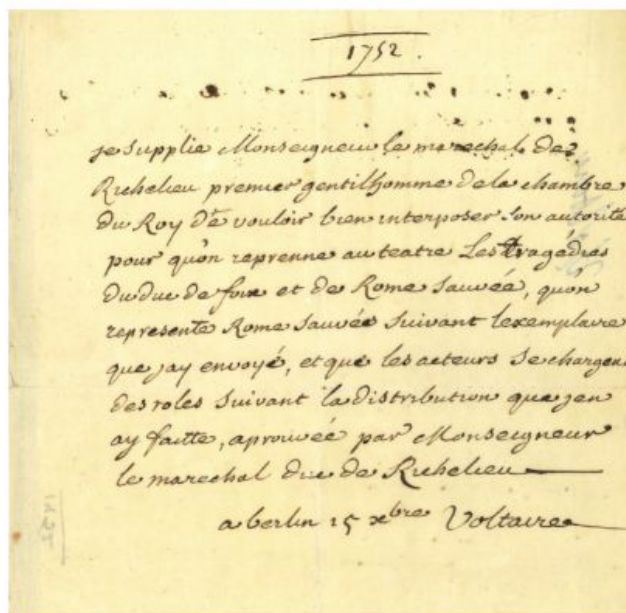 1752.
je supplie Monseigneur le marechal de
Richelieu premier gentilhomme de la chambre
du Roy de vouloir bien interposer son autorité
pour qu'on reprenne au teatre Les tragédies
du duc de foix et de Rome sauvée, qu'on
represente Rome sauvée suivant lexemplaire
que jay envoyé, et que les acteurs se chargent
des roles suivant la distribution que jen
ay faitte, aprouvée par Monseigneur
le marechal duc de Richelieu
a berlin 15 xbre Voltaire
1752